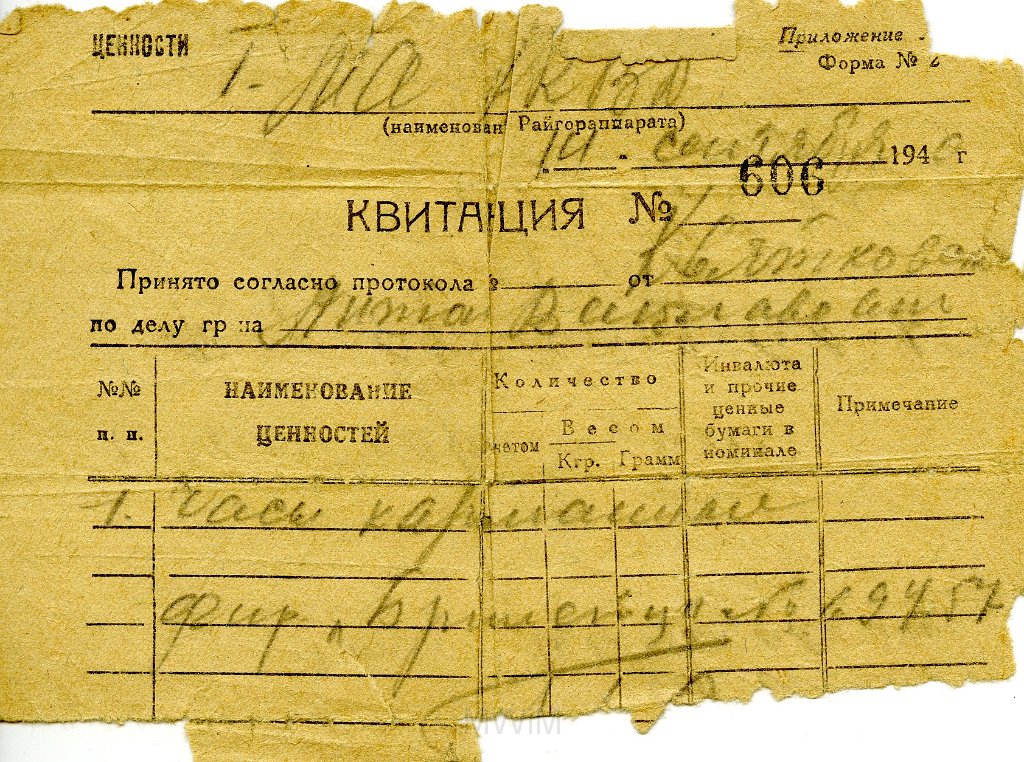 ЦЕННОСТИ
Приложение
Форма № 2
НКВД
(наименован Райгораппарата)
сентября 194 0 г
КВИТАНЦИЯ № 606
Принято согласно протокола № от
по делу гр на Антона
№№ п. п.
НАИМЕНОВАНИЕ ЦЕННОСТЕЙ
Количество
счетом
Весом
Кгр. Грамм
Инвалюта и прочие ценные бумаги в номинале
Примечание
1. Часы карманные
фир №
MWIM